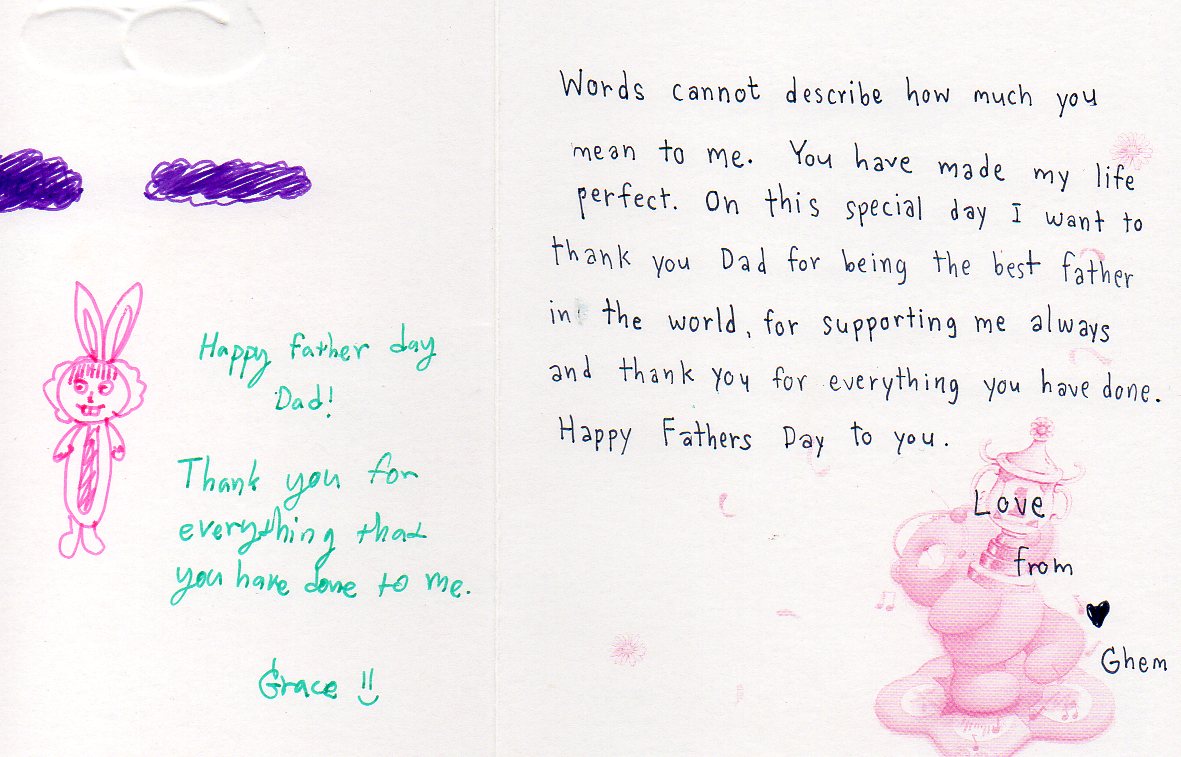 Happy father day
Dad!
Thank you for
everything that
you have done to me.
Grace !!
Words cannot describe how much you
mean to me. You have made my life
perfect. On this special day I want to
thank you Dad for being the best father
in the world, for supporting me always
and thank you for everything you have done.
Happy Fathers Day to you.
Love
from
Ghem